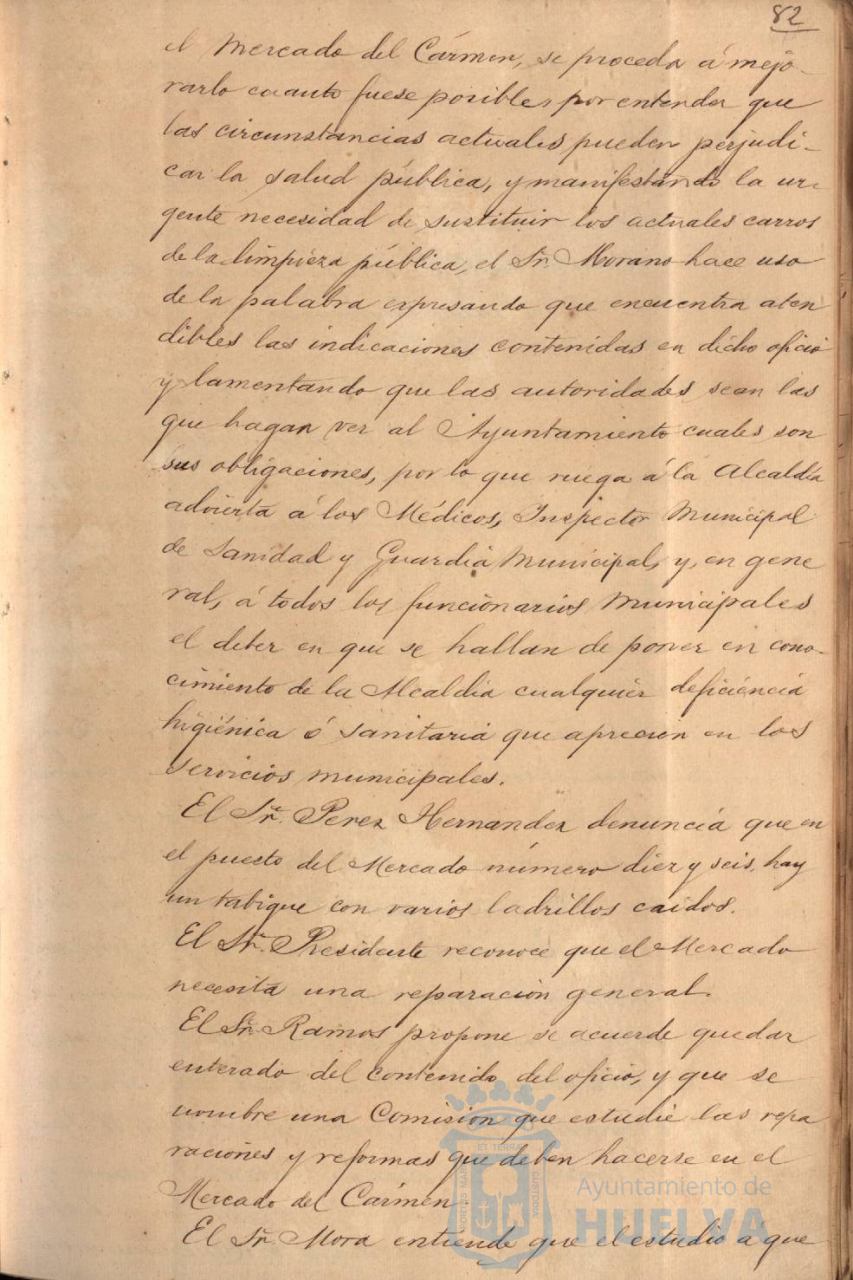 82
el Mercado del Cármen, se proceda á mejo-
rarlo cuanto fuese posible, por entender que
las circunstancias actuales pueden perjudi-
car la salud pública, y manifestando la ur-
gente necesidad de sustituir los actuales carros
de la limpieza pública, el Sr. Morano hace uso
de la palabra expresando que encuentra aten
dibles las indicaciones contenidas en dicho oficio
y lamentando que las autoridades sean las
que hagan ver al Ayuntamiento cuales son
sus obligaciones, por lo que ruega á la Alcaldía
advierta á los Médicos, Inspector Municipal
de Sanidad y Guardia Municipal, y, en gene
ral, á todos los funcionarios Municipales
el deber en que se hallan de poner en cono-
cimiento de la Alcaldia cualquier deficiencia
higiénica ó sanitaria que aprecien en los
servicios municipales.
El Sr. Perez Hernandez denuncia que en
el puesto del Mercado número diez y seis, hay
un tabique con varios ladrillos caidos.
El Sr. Presidente reconoce que el Mercado
necesita una reparación general.
El Sr. Ramos propone se acuerde quedar
enterado del contenido del oficio, y que se
nombre una Comisión que estudie las repa
raciones y reformas que deben hacerse en el
Mercado del Cármen
El Sr. Mora entiende que el estudio á que
Ayuntamiento de
HUELVA